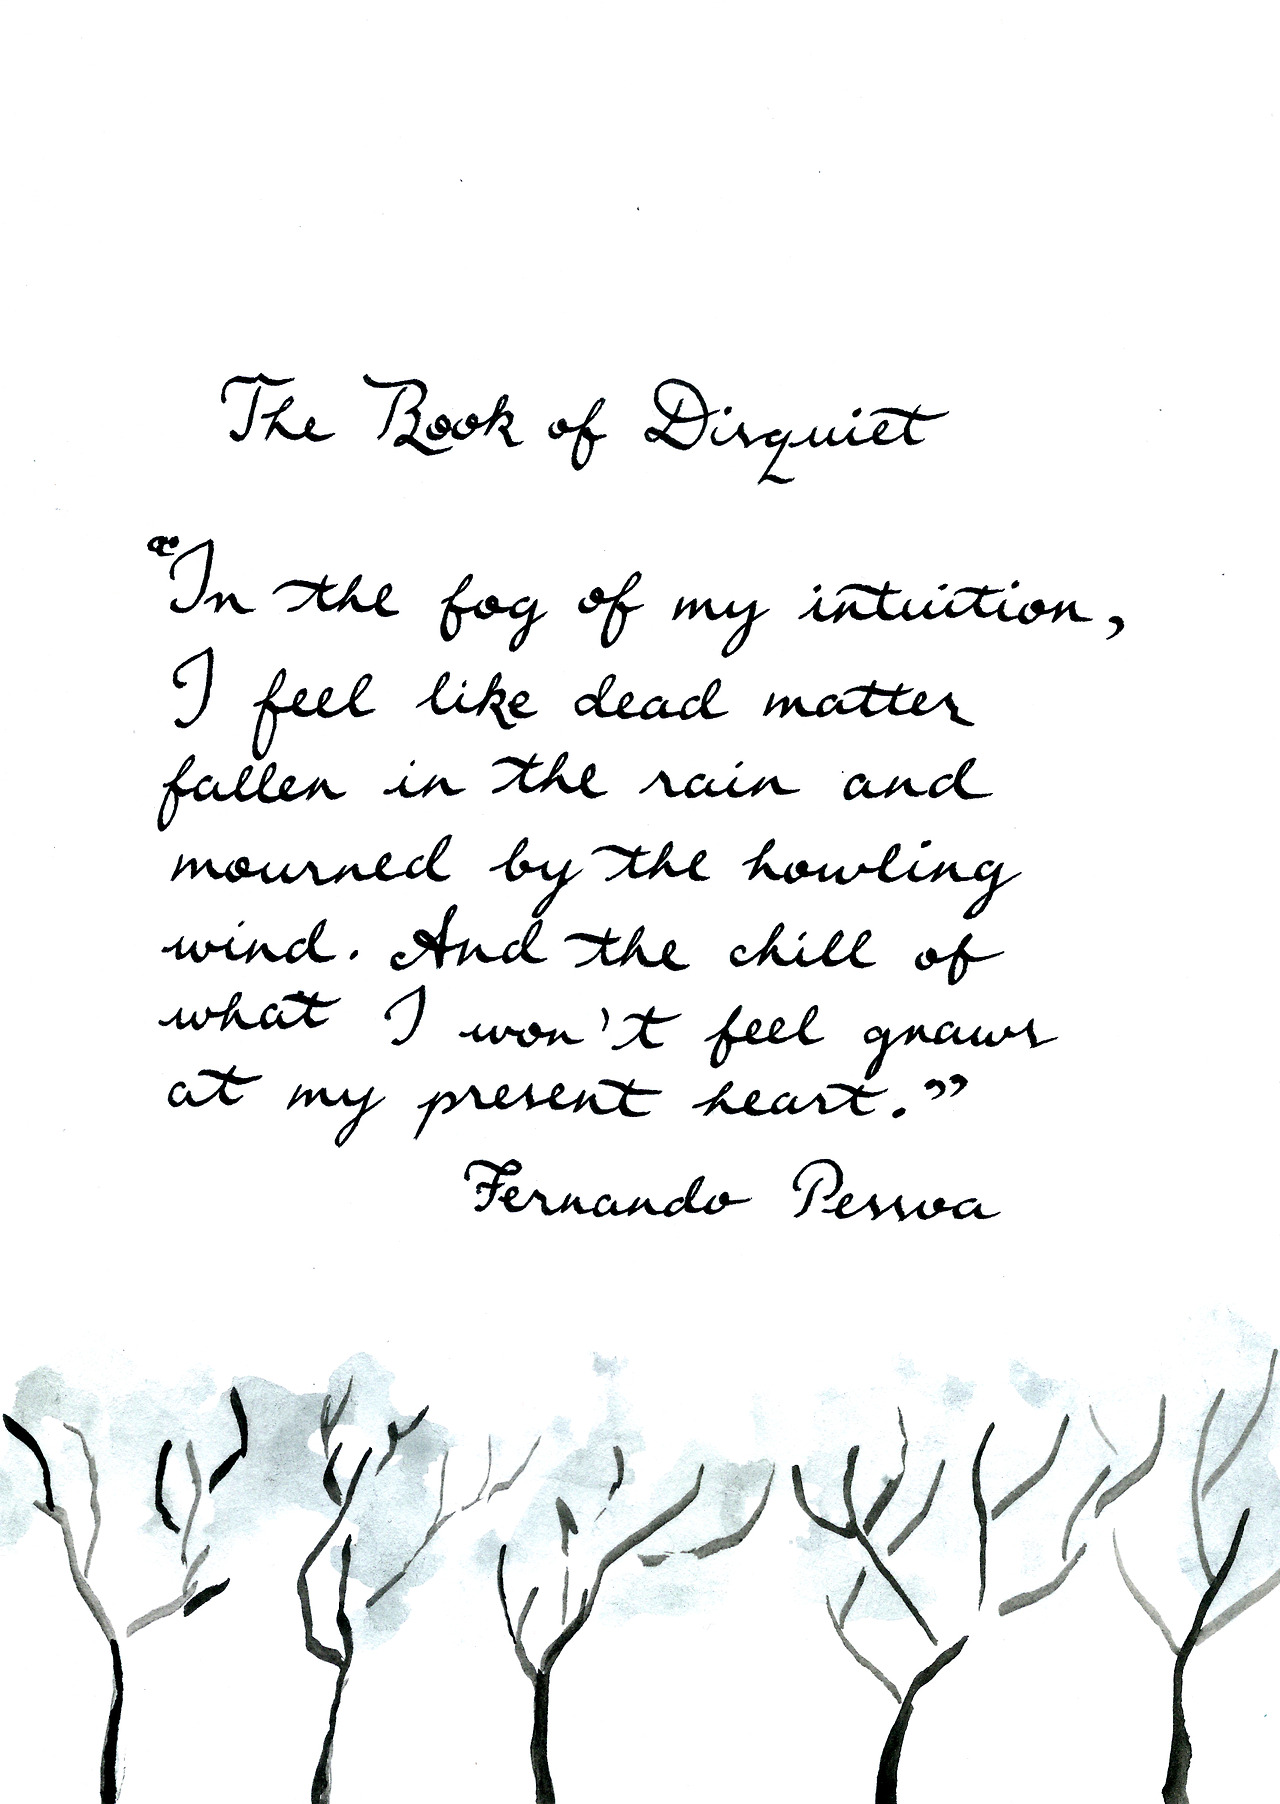 The Book of Disquiet
“In the fog of my intuition,
I feel like dead matter
fallen in the rain and
mourned by the howling
wind. And the chill of
what I won't feel gnaws
at my present heart.”
Fernando Pessoa